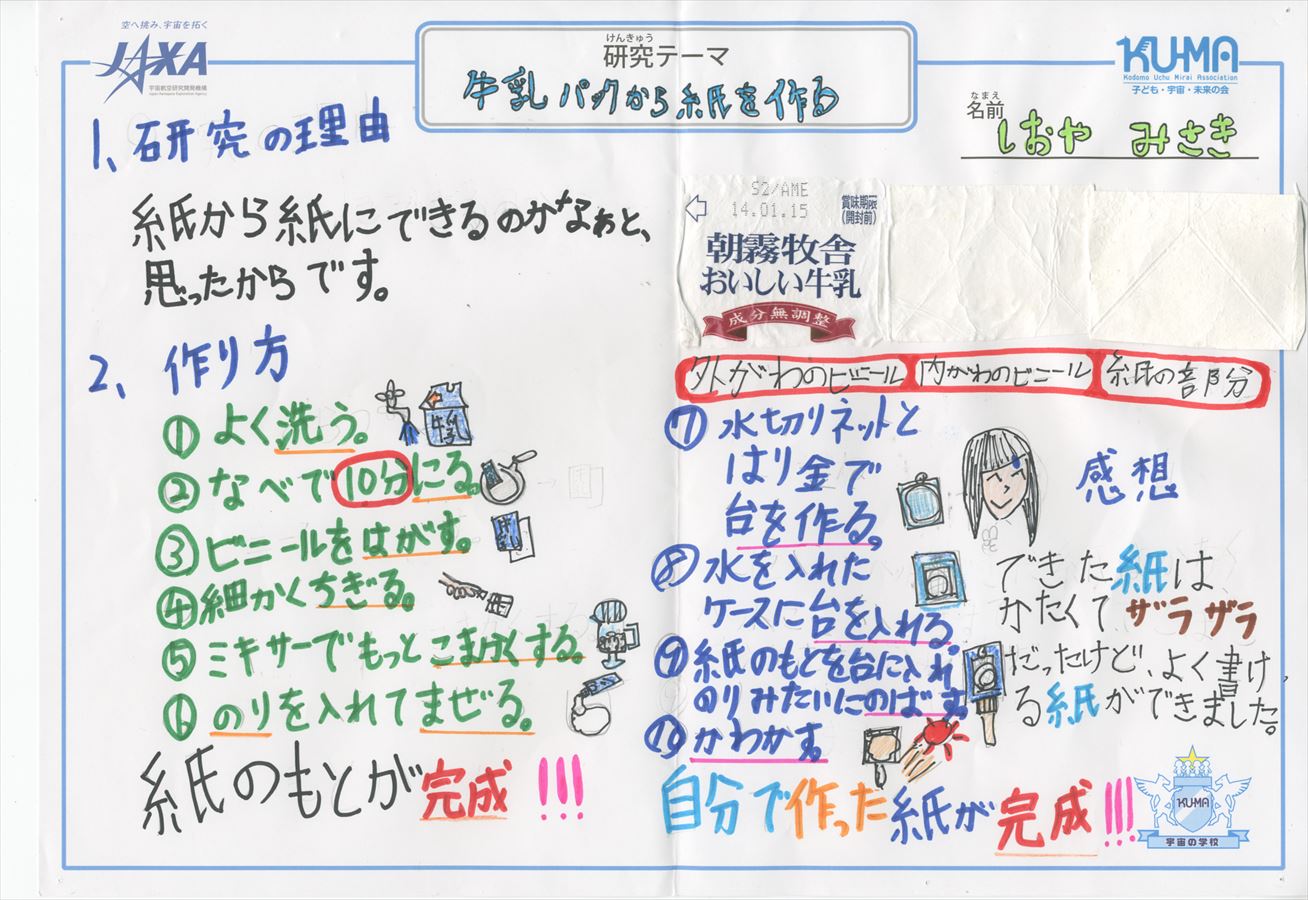 空へ挑み、宇宙を拓く
JAXA
宇宙航空研究開発機構
Japan Aerospace Exploration Agency
けんきゅう
研究テーマ
牛乳パックから紙を作る
KU-MA
Kodomo Uchu Mirai Association
子ども・宇宙・未来の会
なまえ
名前
しおや みさき
1、研究の理由
紙から紙にできるのかなぁと、
思ったからです。
2、作り方
①よく洗う。
牛乳
②なべで10分にる。
③ビニールをはがす。
④細かくちぎる。
⑤ミキサーでもっとこまかくする。
⑥のりを入れてまぜる。
紙のもとが完成!!!
S2/AME
14.01.15
賞味期限
(開封前)
朝霧牧舎
おいしい牛乳
成分無調整
外がわのビニール
内がわのビニール
紙の部分
⑦水切りネットと
はり金で
台を作る。
⑧水を入れた
ケースに台を入れる。
⑨紙のもとを台に入れ
のりみたいにのばす。
⑩かわかす。
自分で作った紙が完成!!!
感想
できた紙は、
かたくてザラザラ
だったけど、よく書け
る紙ができました。
KU-MA
宇宙の学校